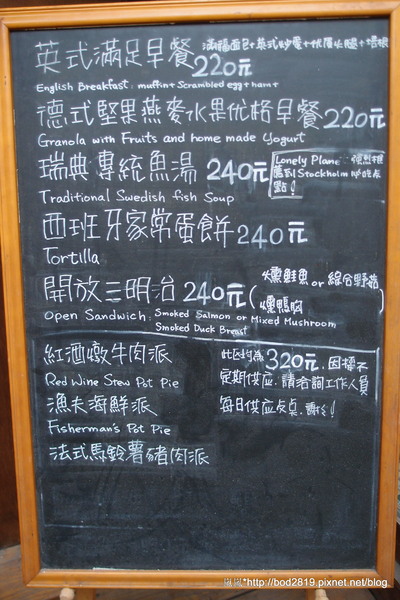 英式滿足早餐 滿福面包+英式炒蛋+伏厚火腿+培根
220元
English Breakfast: muffin+Scrambled egg+ham+
德式堅果燕麥水果优格早餐220元
Granola with Fruits and home made Yogurt
瑞典專統魚湯 240元
Lonely Plane 強烈推
薦到Stockholm必吃
點!
Traditional Swedish fish Soup
西班牙家常蛋餅 240元
Tortilla
開放三明治 240元(燻鮭魚or綜合野菇
燻鴨胸)
Open Sandwich: Smoked Salmon or Mixed Mushroom
Smoked Duck Breast
紅酒燉牛肉派
Red Wine Stew Pot Pie
漁夫海鮮派
Fisherman's Pot Pie
法式馬鈴薯豬肉派
此区均為320元.因採不
定期供应.請洽詢工作人員
每日供应点.謝謝!
http://bod2819.pixnet.net/blog